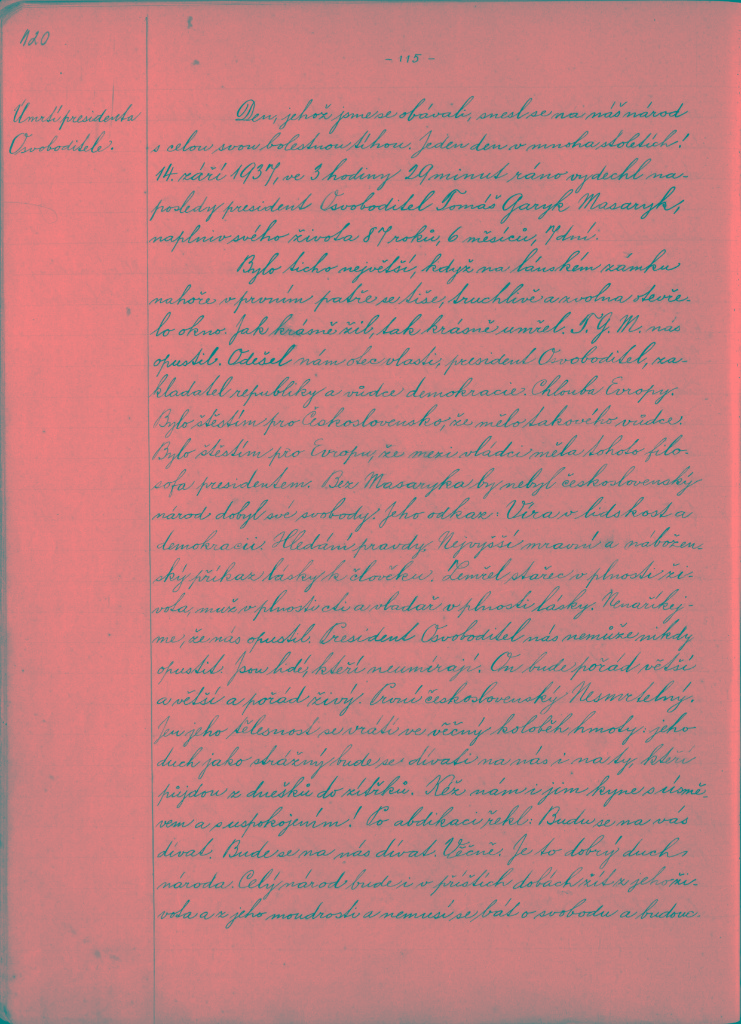 120
- 115 -
Úmrtí presidenta
Osvoboditele.
Den, jehož jsme se obávali, snesl se na náš národ
s celou svou bolestnou tíhou. Jeden den v mnoha stoletích!
14. září 1937, ve 3 hodiny 29 minut ráno vydechl na-
posledy president Osvoboditel Tomáš Garyk Masaryk,
naplniv svého života 87 roků, 6 měsíců, 7 dní.
Bylo ticho největší, když na lánském zámku
nahoře v prvním patře se tiše, truchlivě a zvolna otevře-
lo okno. Jak krásně žil, tak krásně umřel. T. G. M. nás
opustil. Odešel nám otec vlasti, president Osvoboditel, za-
kladatel republiky a vůdce demokracie. Chlouba Evropy.
Bylo štěstím pro Československo, že mělo takového vůdce.
Bylo štěstím pro Evropu, že mezi vládci měla tohoto filo-
sofa presidentem. Bez Masaryka by nebyl československý
národ dobyl své svobody. Jeho odkaz: Víra v lidskost a
demokracii. Hledání pravdy. Nejvyšší mravní a nábožen-
ský příkaz lásky k člověku. Zemřel stařec v plnosti ži-
vota, muž v plnosti cti a vladař v plnosti lásky. Nenaříkej-
me, že nás opustil. President Osvoboditel nás nemůže nikdy
opustit. Jsou lidé, kteří neumírají. On bude pořád větší
a větší a pořád živý. První československý Nesmrtelný.
Jen jeho tělesnost se vrátí ve věčný koloběh hmoty: jeho
duch jako strážný bude se dívati na nás i na ty, kteří
půjdou z dnešků do zítřků. Kéž nám i jim kyne s úsmě-
vem a s uspokojením! Po abdikaci řekl: Budu se na vás
dívat. Bude se na nás dívat. Věčně. Je to dobrý duch
národa. Celý národ bude i v příštích dobách žít z jeho ži-
vota a z jeho moudrosti a nemusí se bát o svobodu a budouc-